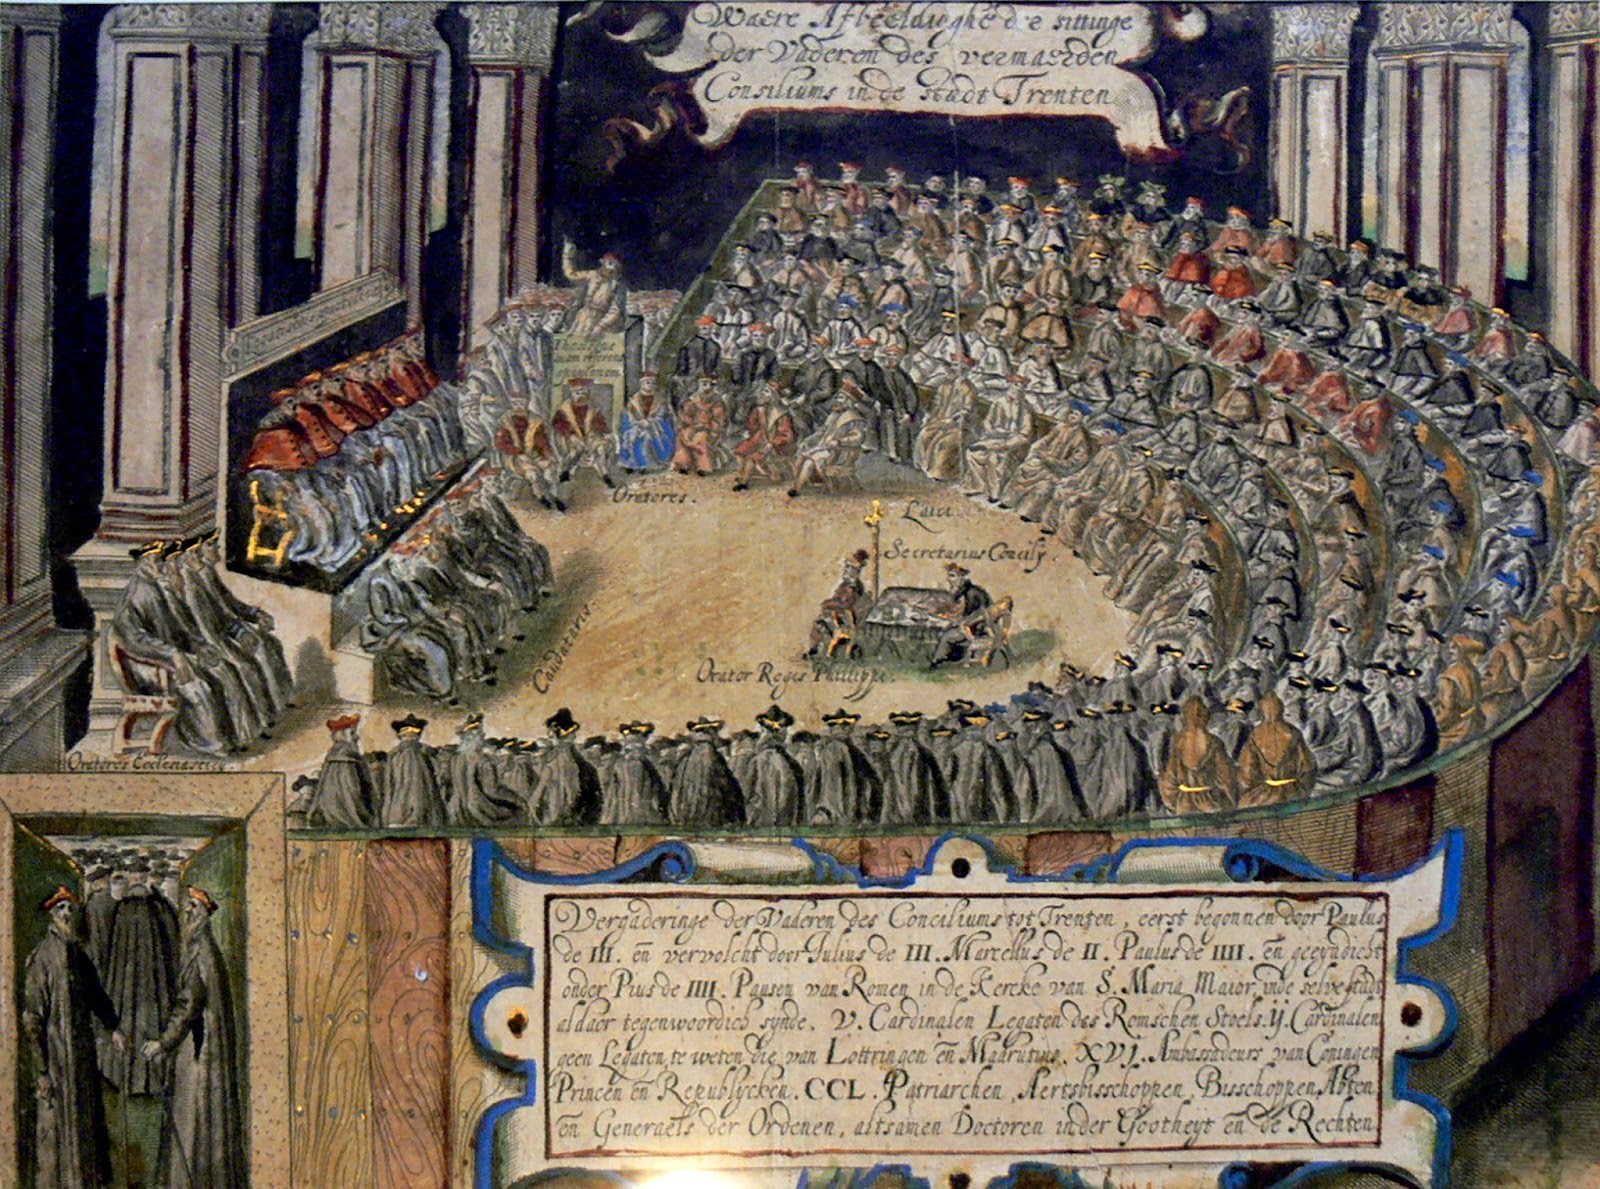 Waere Afbeeldinghe de sittinge
der Vaderen des vermaerden
Consiliums in de Stadt Trenten
Theologus
suam referens
opinionem
Oratores.
Laici.
Secretarius Concilÿ.
Caudatarii
Orator Regis Philippi.
Oratores Ecclesiastici.
Vergaderinge der Vaderen des Conciliums tot Trenten, eerst begonnen door Paulus
de III. eñ vervolcht door Iulius de III. Marcellus de II. Paulus de IIII. eñ geeyndicht
onder Pius de IIII. Pausen van Romen in de Kercke van S. Maria Maior, inde selve stadt
aldaer tegenwoordich synde. V. Cardinalen Legaten des Romschen Stoels. ij. Cardinalen
geen Legaten, te weten die van Lottringen eñ Madrutius. XVI. Ambassadeurs van Coningen
Princen eñ Republÿcken. CCL. Patriarchen, Aertsbisschoppen, Bisschoppen, Abten
eñ Generaels der Ordenen, altsamen Doctoren in der Gootheyt eñ de Rechten